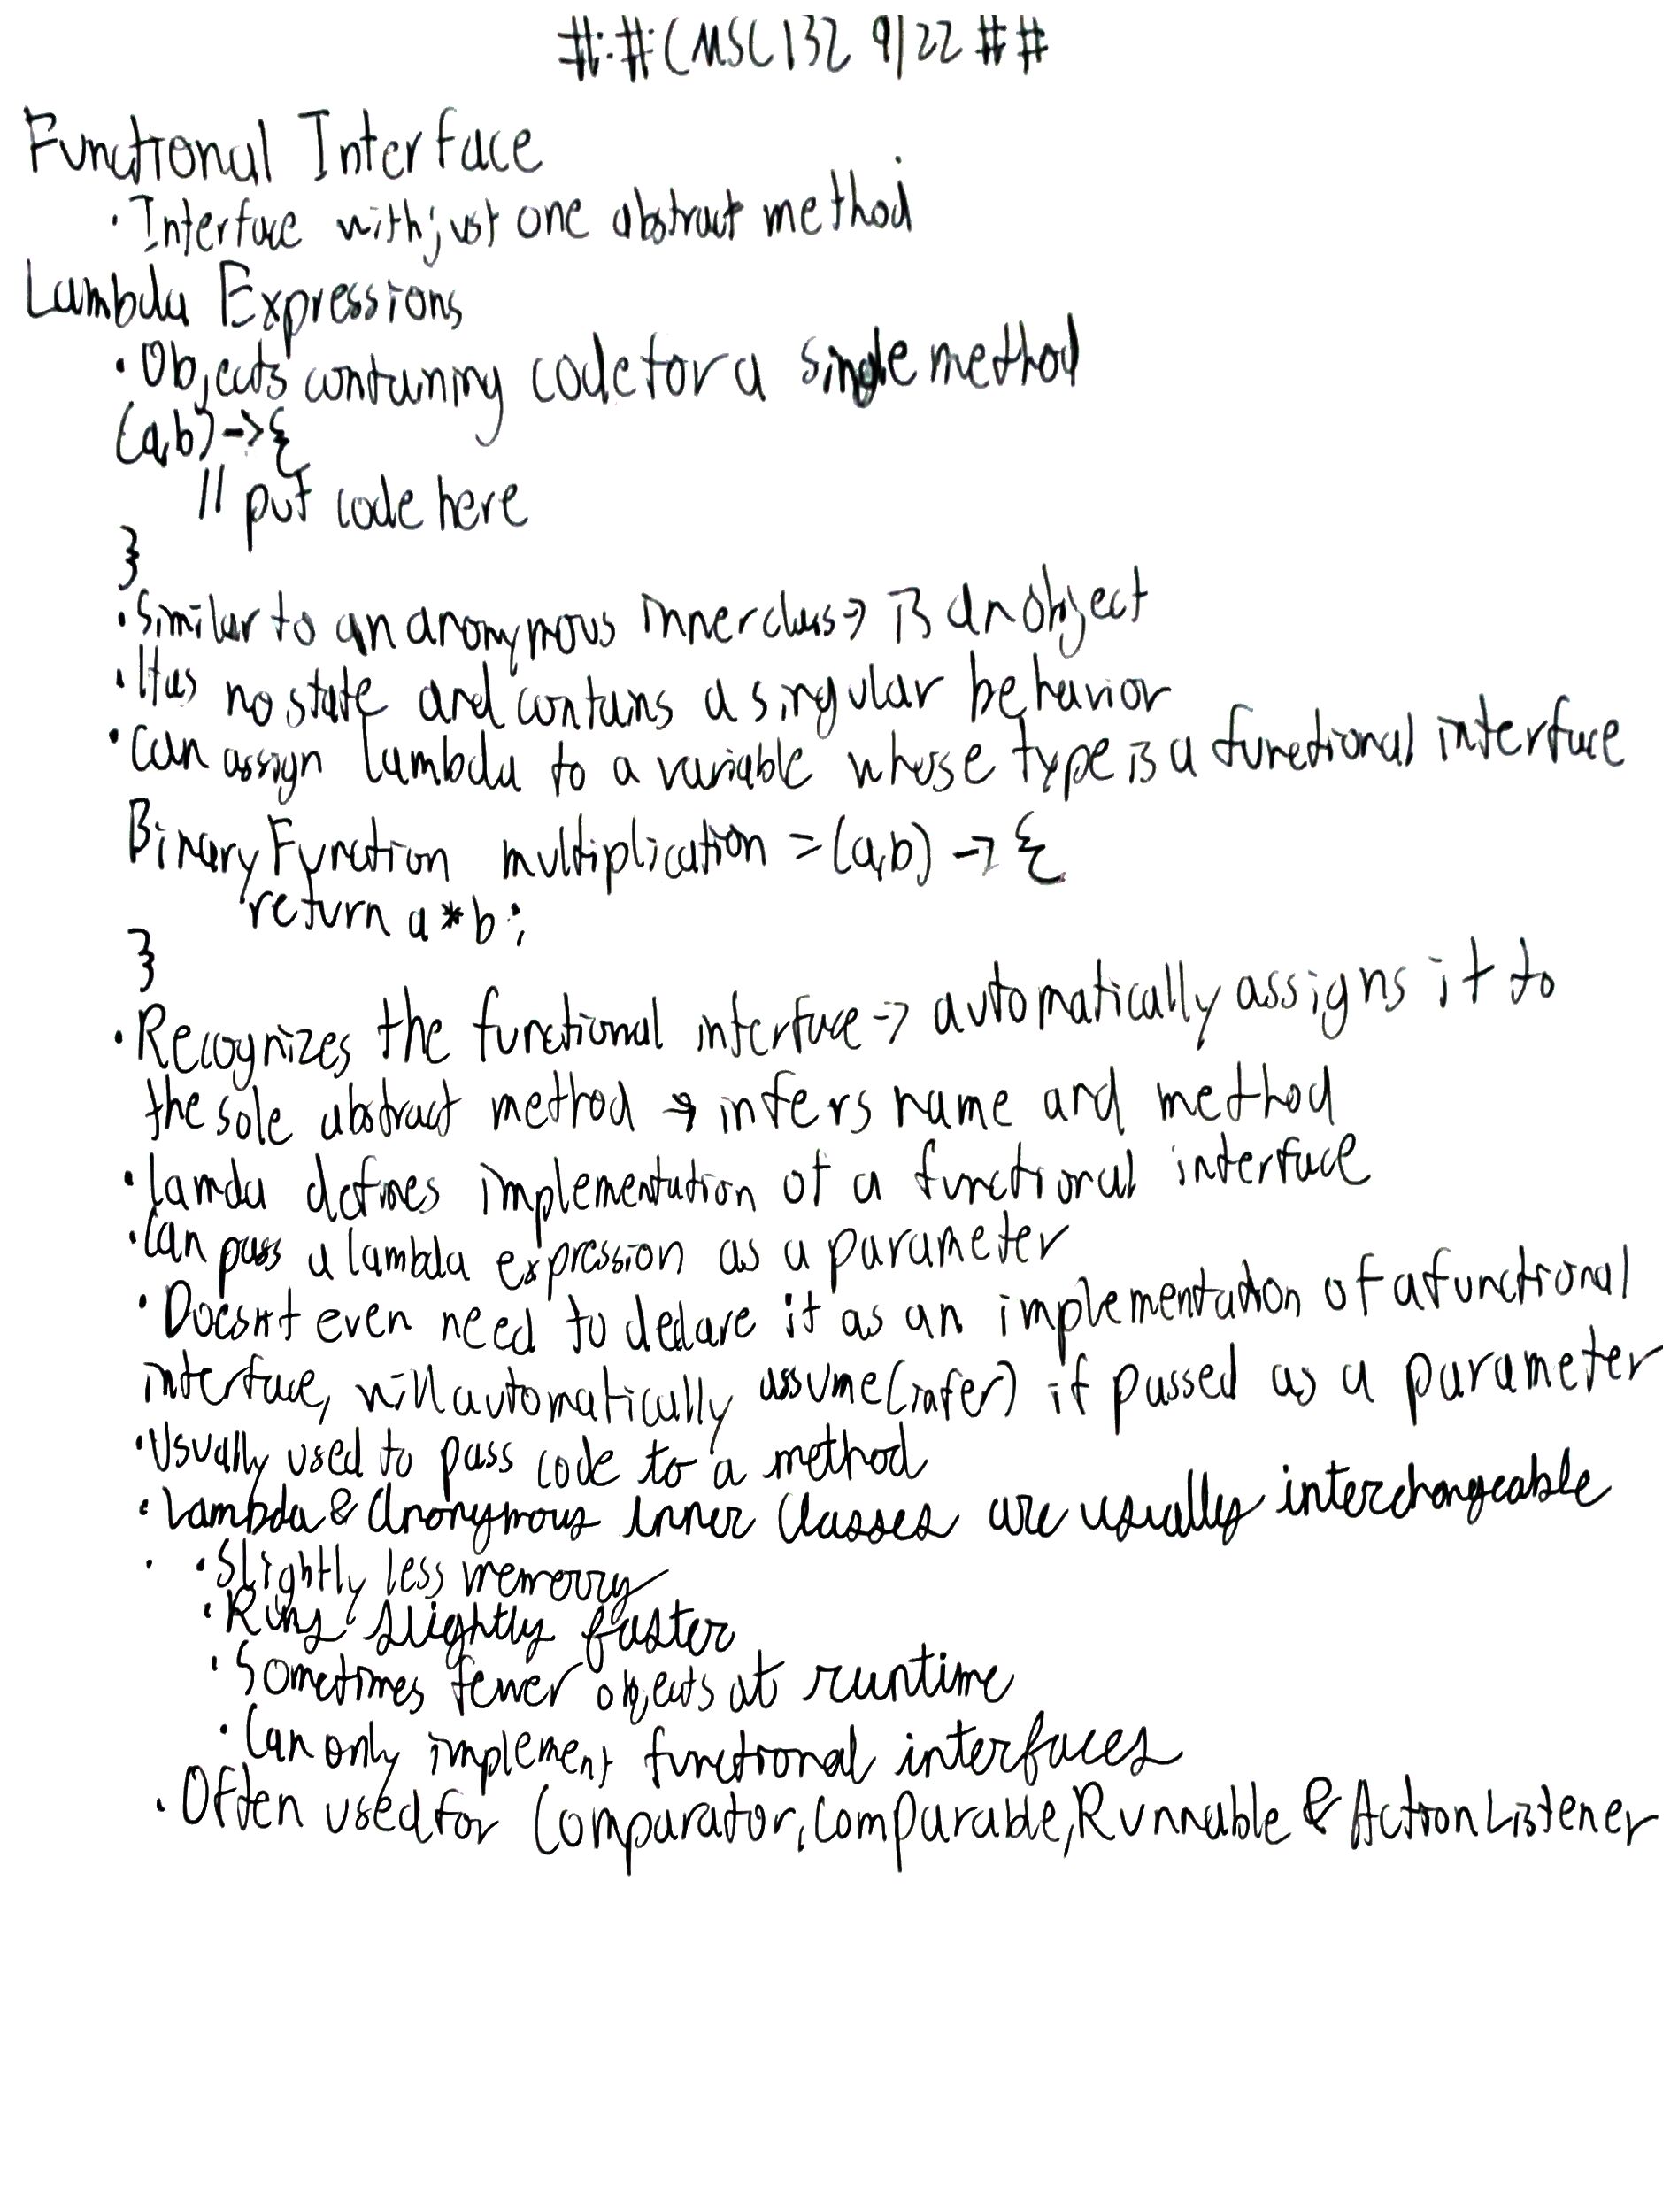 ##CMSC132 9/22##
Functional Interface
· Interface with just one abstract method
Lambda Expressions
· Objects containing code for a single method
(a,b)->{
// put code here
}
· Similar to an anonymous inner class -> is an object
· Has no state and contains a singular behavior
· Can assign lambda to a variable whose type is a functional interface
BinaryFunction multiplication = (a,b) -> {
return a*b;
}
· Recognizes the functional interface -> automatically assigns it to
the sole abstract method -> infers name and method
· lamda defines implementation of a functional interface
· Can pass a lambda expression as a parameter
· Doesn't even need to declare it as an implementation of a functional
interface, will automatically assume (infer) if passed as a parameter
· Usually used to pass code to a method
· Lambda & Anonymous inner classes are usually interchangeable
· · Slightly less memory
· Runs slightly faster
· Sometimes fewer objects at runtime
· Can only implement functional interfaces
· Often used for Comparator, Comparable, Runnable & ActionListener